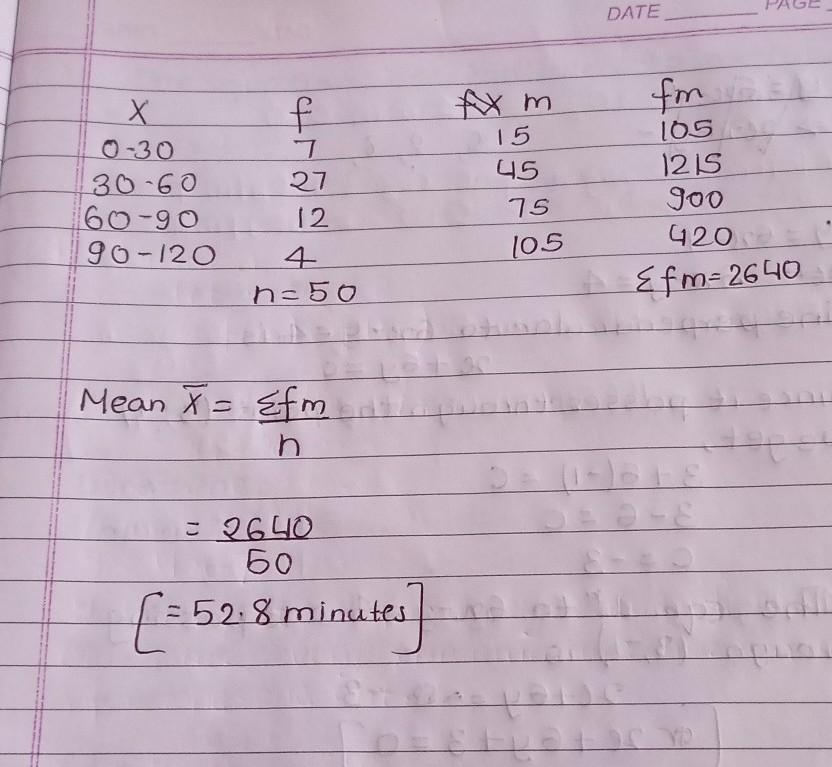 DATE PAGE
X f fx m fm
0-30 7 15 105
30-60 27 45 1215
60-90 12 75 900
90-120 4 105 420
n=50 Σfm=2640
Mean X̄ = Σfm
n
= 2640
50
[= 52.8 minutes]